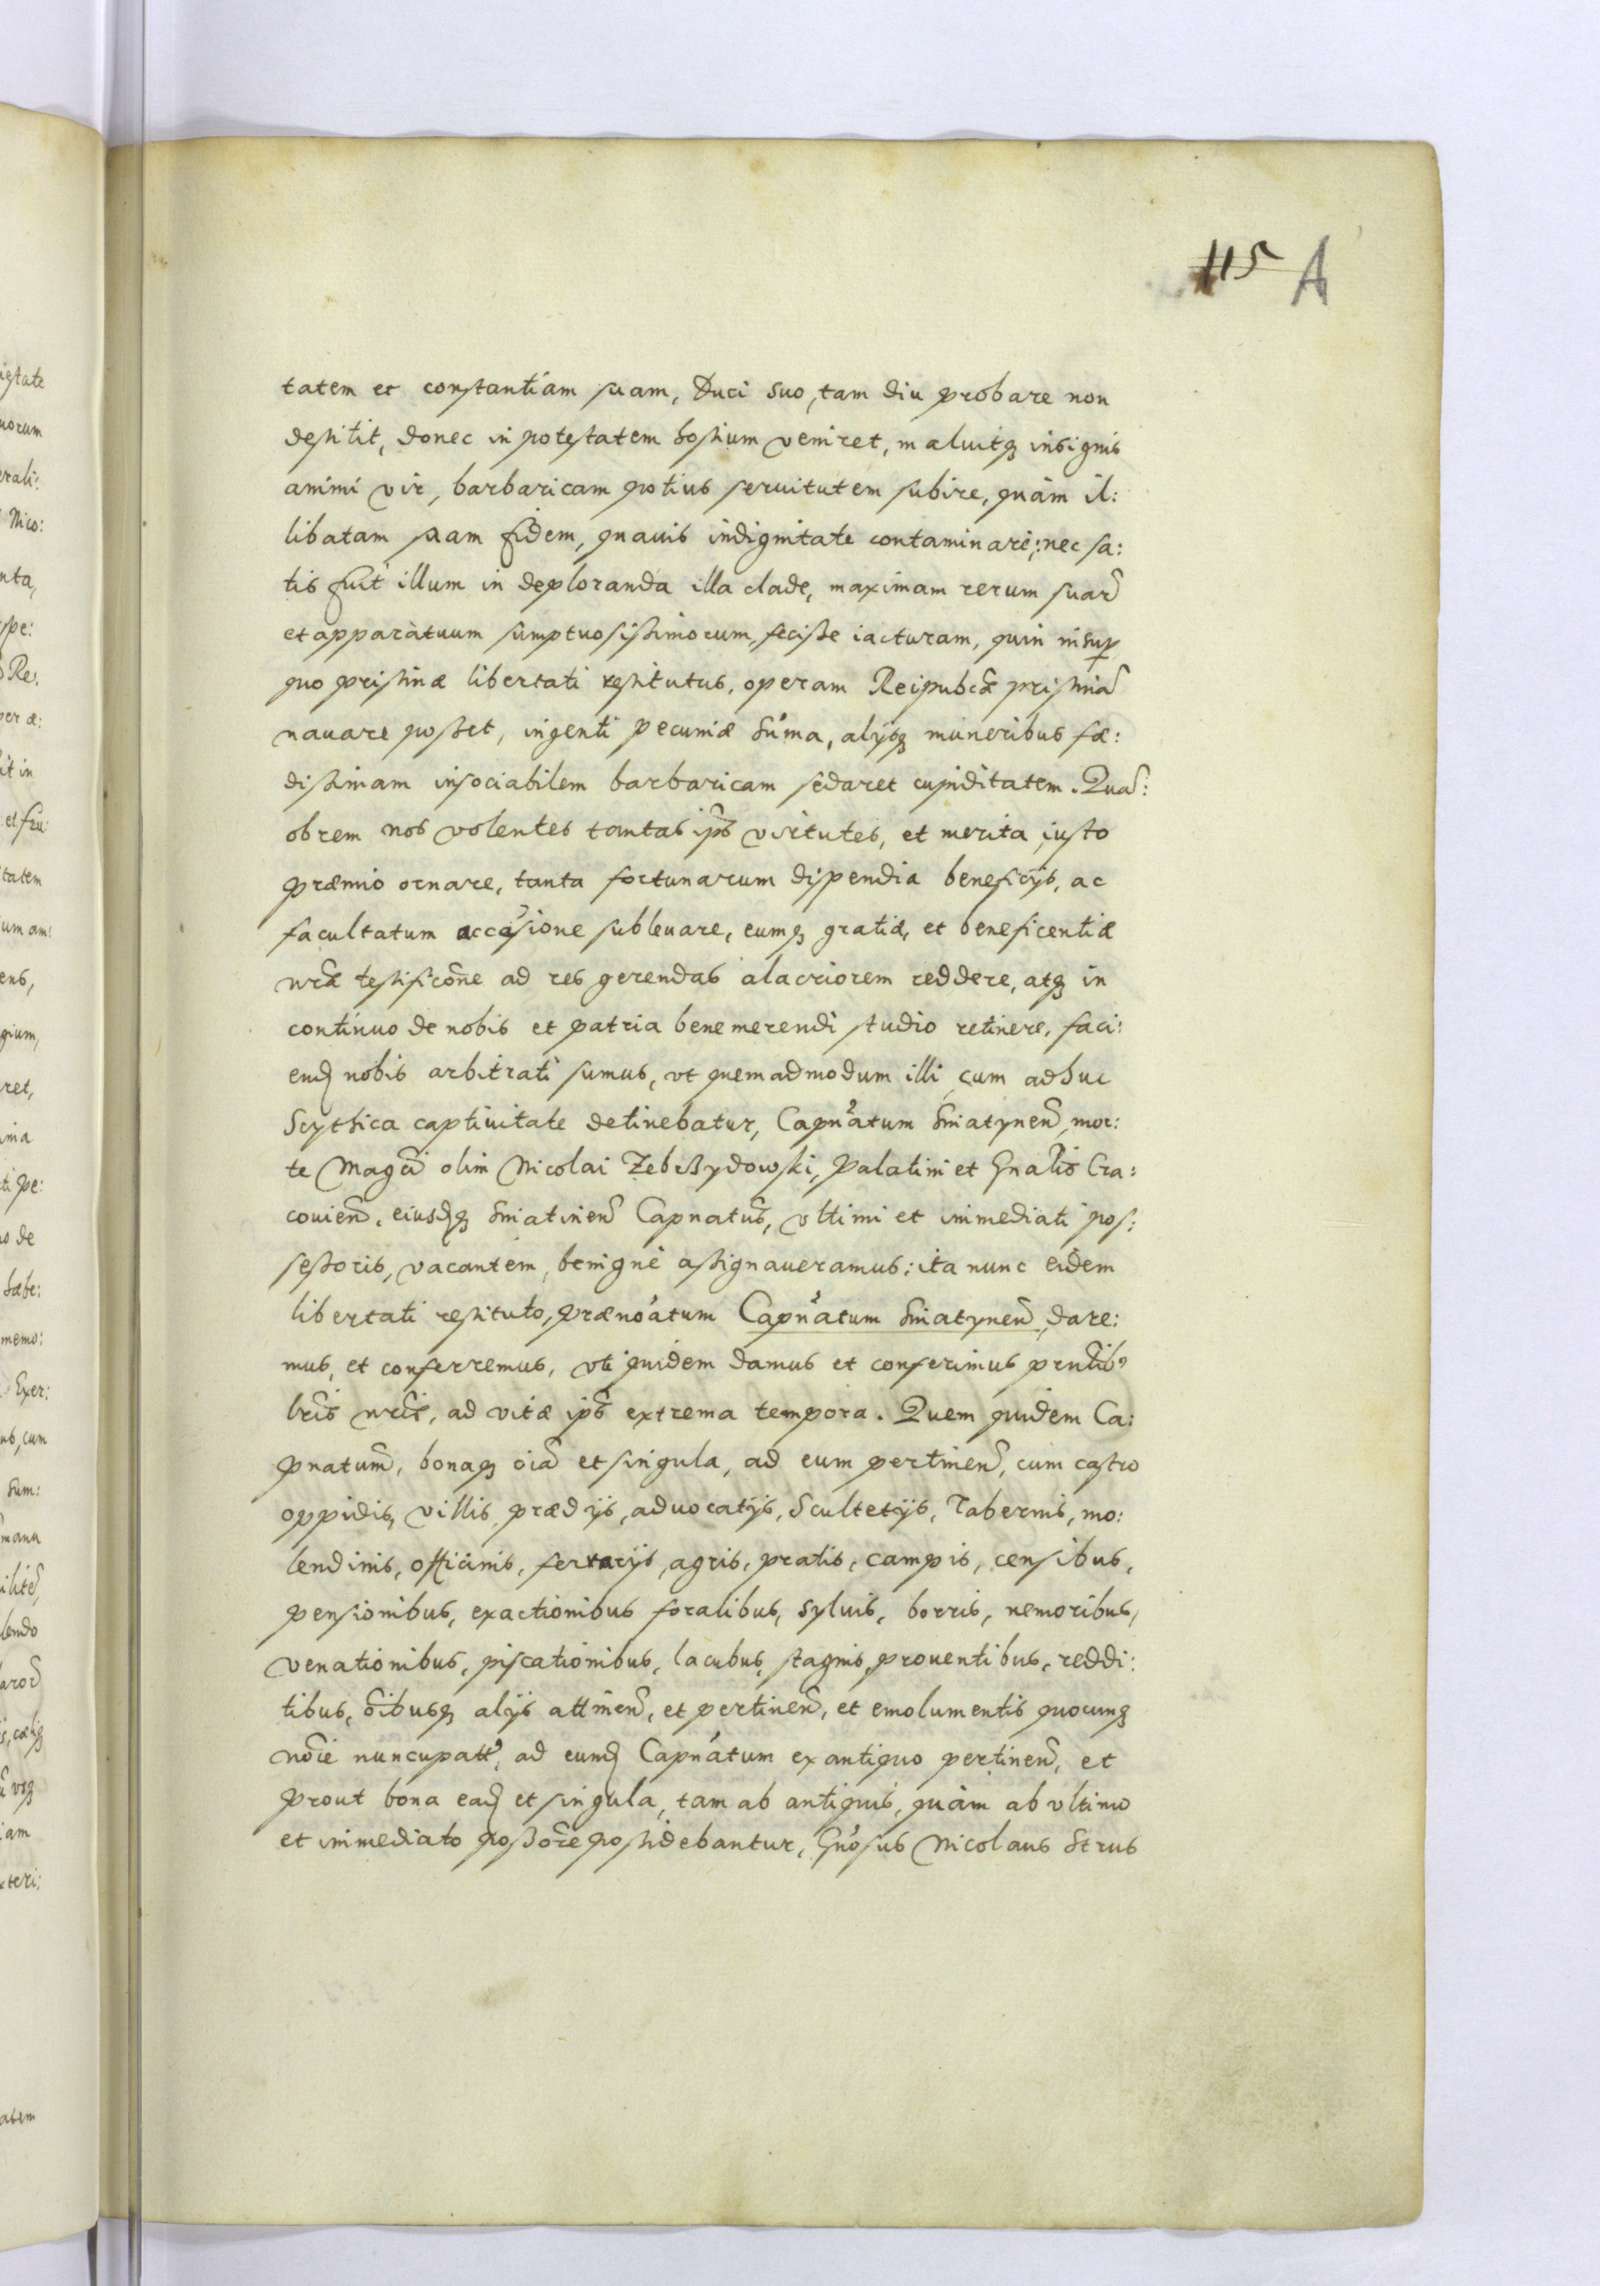 115 A
tatem et constantiam suam, Duci suo, tam diu probare non
destitit, donec in potestatem hostium veniret, maluitq3 insignis
animi vir, barbaricam potius seruitutem subire, quàm il:
libatam suam fidem, quauis indignitate contaminari; nec sa:
tis fuit illum in deploranda illa clade, maximam rerum suar̃
et apparàtuum sumptuosissimorum, fecisse iacturam, quin insup
quo pristinæ libertati restitutus, operam Reipubcæ̃ pristinã
nauare posset, ingenti pecuniæ sum̃a, alijsq3 muneribus fæ:
dissimam insociabilem barbaricam sedaret cupiditatem. Quã:
obrem nos volentes tantas ip̃s virtutes, et merita iusto
præmio ornare, tanta fortunarum dispendia beneficijs, ac
facultatum accessione subleuare, eumq3 gratiæ, et beneficentiæ
nr̃æ testificõne ad res gerendas alacriorem reddere, atq3 in
continuo de nobis et patria benemerendi studio retinere, faci:
end nobis arbitrati sumus, vt quemadmodum illi cum adhuc
Scythica captiuitate detinebatur, Capn̂atum Sniatynen̂, mor:
te Magci olim Nicolai Zebrzydowski, Palatini et Gnalis Cra:
couien̂, eiusdq3 Sniatinen̂ Capnatus̃, vltimi et immediati pos:
sessoris, vacantem, benigné assignaueramus: ita nunc eidem
libertati restituto, prænoátum Capn̂atum Sniatynen̂, dare:
mus, et conferremus, vti quidem damus et conferimus prntib9
lr̃is nr̃is, ad vitæ ip̃s extrema tempora. Quem quidem Ca:
pnatum̃, bonaq3 oĩa et singula, ad eum pertinen̂, cum castro
oppidis, villis, prædijs, aduocatijs, Scultetijs, Tabernis, mo:
lendinis, officinis, agris, pratis, campis, censibus,
pensionibus, exactionibus foralibus, syluis, borris, nemoribus,
venationibus, piscationibus, lacubus, stagnis, prouentibus, reddi:
tibus, oĩbusq3 alijs attinen̂, et pertinen̂, et emolumentis quocunq3
noĩe nuncupatt, ad eumd Capnátum ex antiquo pertinen̂, et
prout bona ead et singula, tam ab antiquis, quàm ab vltimo
et immediato possore possidebantur, Gnósus Nicolaus Strus